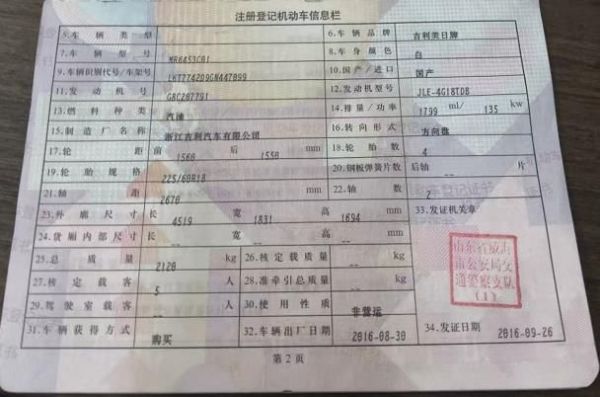 注册登记机动车信息栏
5.车辆类型 6.车辆品牌 吉利美日牌
7.车辆型号 MR6453C01 8.车身颜色 白
9.车辆识别代号/车架号 L6T7742D9GN447899 10.国产/进口 国产
11.发动机号 G8C207791 12.发动机型号 JLE-4G18TDB
13.燃料种类 汽油 14.排量/功率 1799 ml/ 135 kw
15.制造厂名称 浙江吉利汽车有限公司 16.转向形式 方向盘
17.轮距 前 1560 后 1550 mm 18.轮胎数 4
19.轮胎规格 225/60R18 20.钢板弹簧片数 后轴 -- 片
21.轴距 2670 mm 22.轴数 2
23.外廓尺寸 长 4519 宽 1831 高 1694 mm 33.发证机关章
24.货厢内部尺寸 长 -- 宽 -- 高 -- mm
25.总质量 2120 kg 26.核定载质量 -- kg
27.核定载客 5 人 28.准牵引总质量 -- kg
29.驾驶室载客 -- 人 30.使用性质 非营运
31.车辆获得方式 购买 32.车辆出厂日期 2016-08-30 34.发证日期 2016-09-26
山东省威海
市公安局交
通警察支队
(1)
第2页